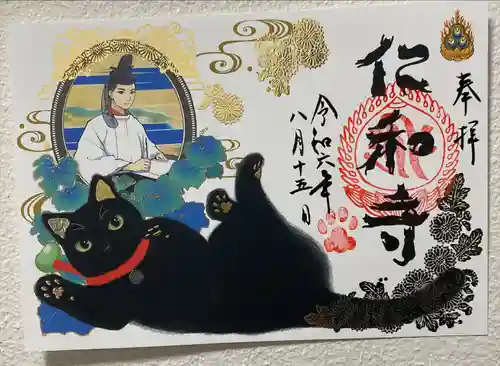 奉拝
仁和寺
令和六年
八月十五日